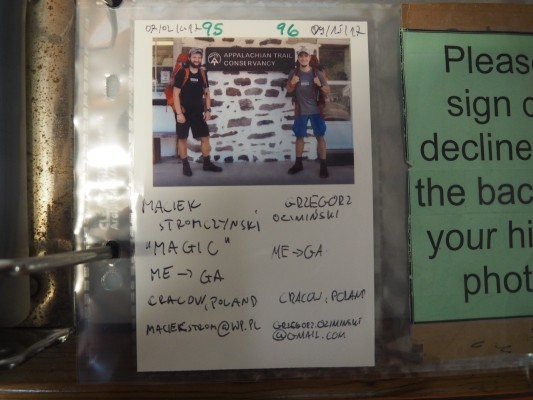 95 96 09/15/17
APPALACHIAN TRAIL
CONSERVANCY
MACIEK
STROMCZYŃSKI
"MAGIC"
ME → GA
CRACOW, POLAND
MACIEKSTROM@WP.PL
GRZEGORZ
OCIMIŃSKI
ME → GA
CRACOW, POLAND
GRZEGORZ.OCIMINSKI
@GMAIL.COM
Please
sign
decline
the bac
your hi
phot